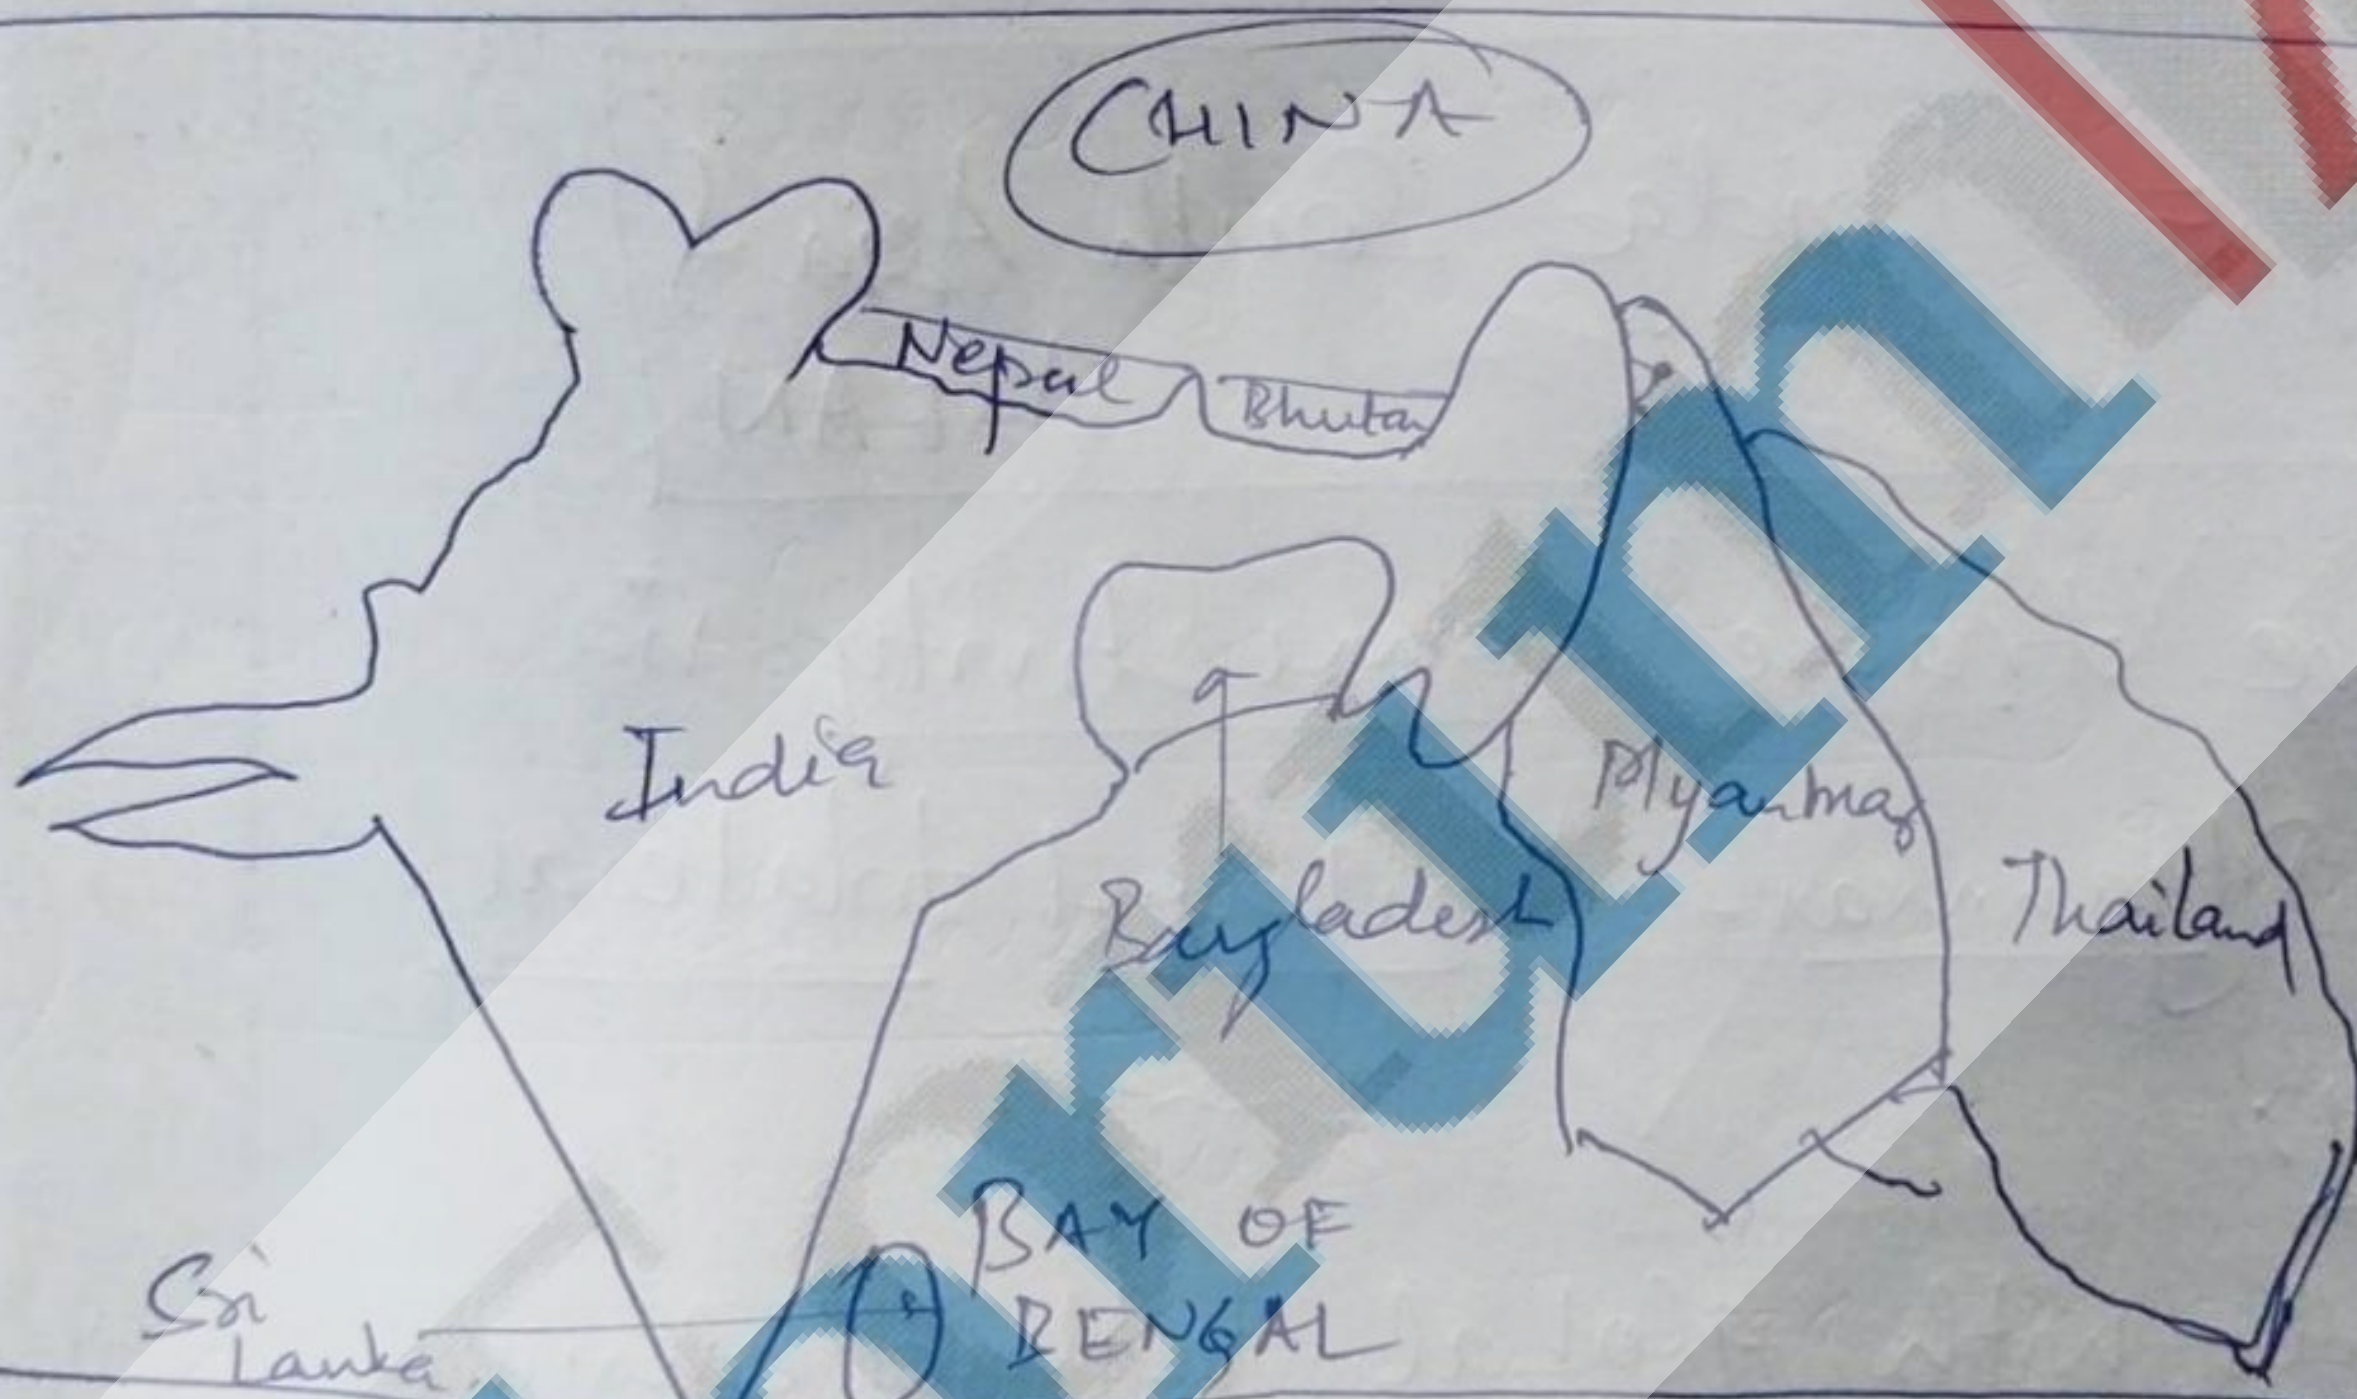 CHINA
Nepal
Bhutan
India
Myanmar
Bangladesh
Thailand
BAY OF
BENGAL
Sri
Lanka